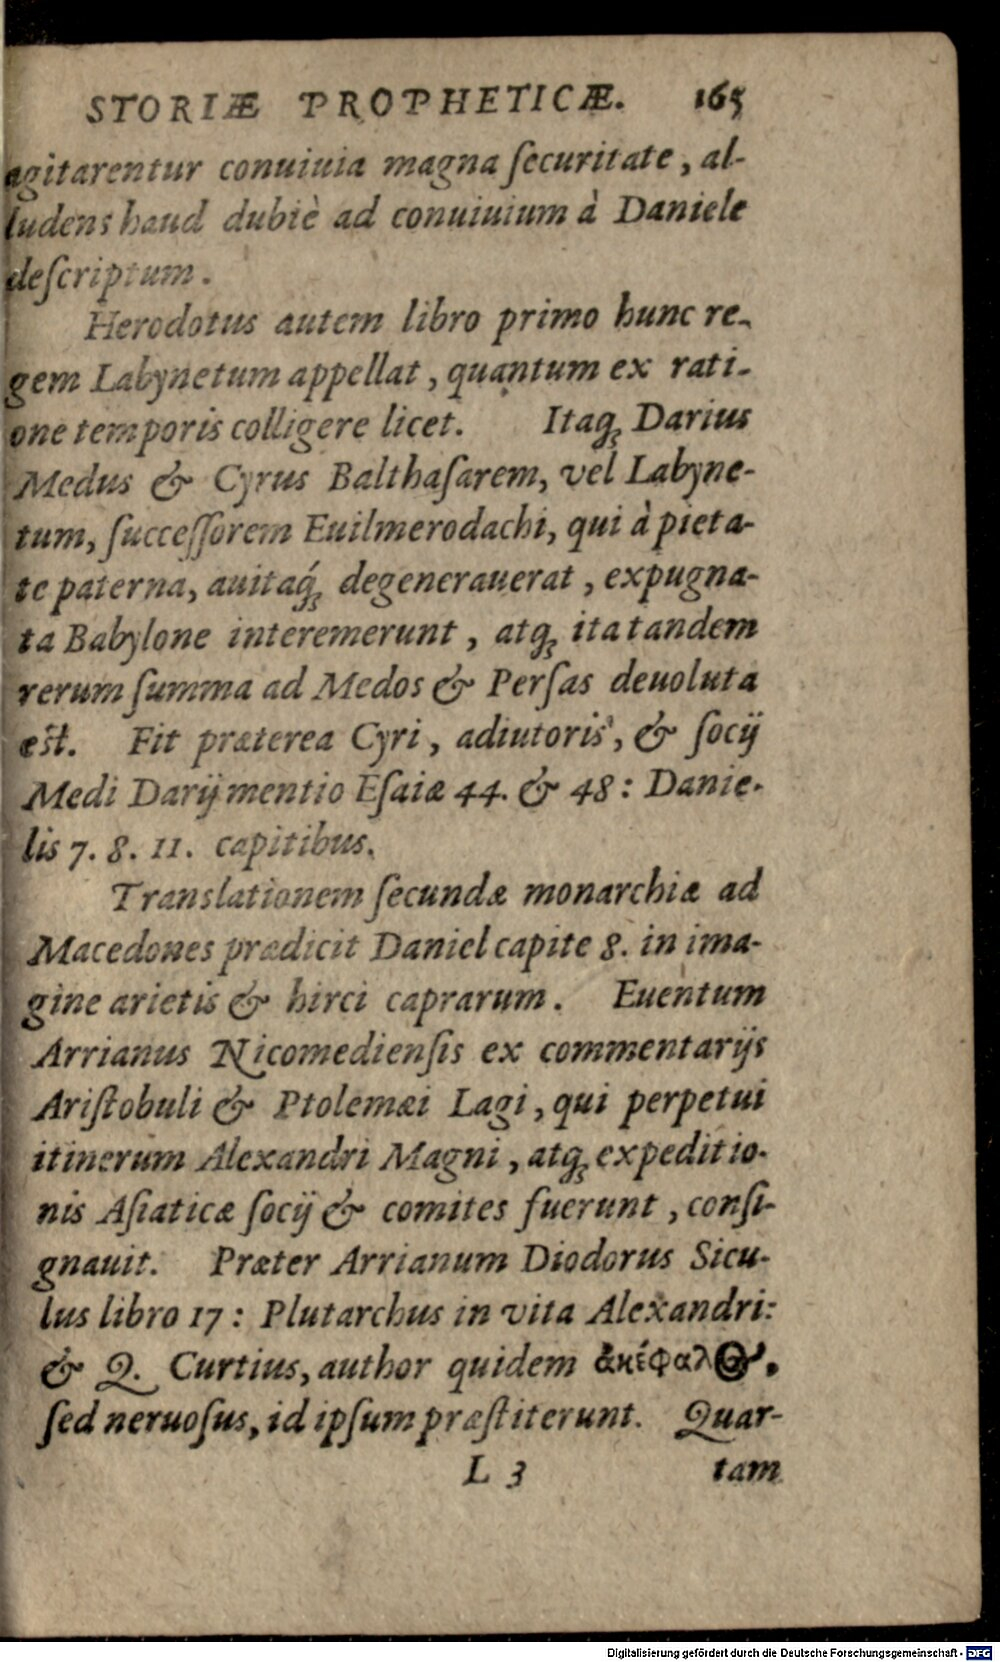 STORIÆ PROPHETICÆ. 165
agitarentur conuiuia magna ſecuritate, al-
ludens haud dubiè ad conuiuium à Daniele
deſcriptum.
Herodotus autem libro primo hunc re-
gem Labynetum appellat, quantum ex rati-
one temporis colligere licet. Itaq; Darius
Medus & Cyrus Balthaſarem, vel Labyne-
tum, ſucceſſorem Euilmerodachi, qui à pieta-
te paterna, auitaq́; degenerauerat, expugna-
ta Babylone interemerunt, atq; ita tandem
rerum ſumma ad Medos & Perſas deuoluta
eſt. Fit præterea Cyri, adiutoris, & ſocij
Medi Darij mentio Eſaiæ 44. & 48: Danie-
lis 7. 8. 11. capitibus.
Translationem ſecundæ monarchiæ ad
Macedones prædicit Daniel capite 8. in ima-
gine arietis & hirci caprarum. Euentum
Arrianus Nicomedienſis ex commentarijs
Ariſtobuli & Ptolemæi Lagi, qui perpetui
itinerum Alexandri Magni, atq; expeditio-
nis Aſiaticæ ſocij & comites fuerunt, conſi-
gnauit. Præter Arrianum Diodorus Sicu-
lus libro 17: Plutarchus in vita Alexandri:
& Q. Curtius, author quidem ἀκέφαλος,
ſed neruoſus, id ipſum præſtiterunt. Quar-
L 3 tam
Digitalisierung gefördert durch die Deutsche Forschungsgemeinschaft - DFG